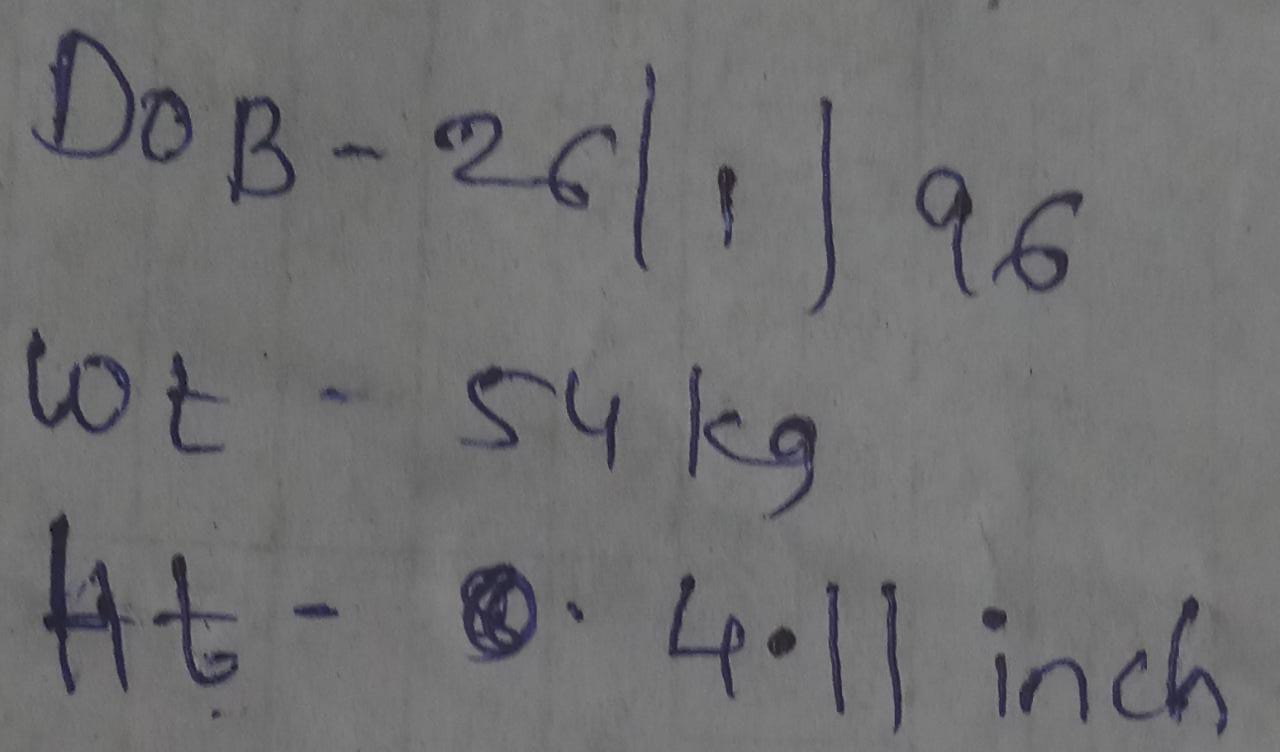 DOB - 26/1/96
wt - 54 kg
Ht - 4.11 inch